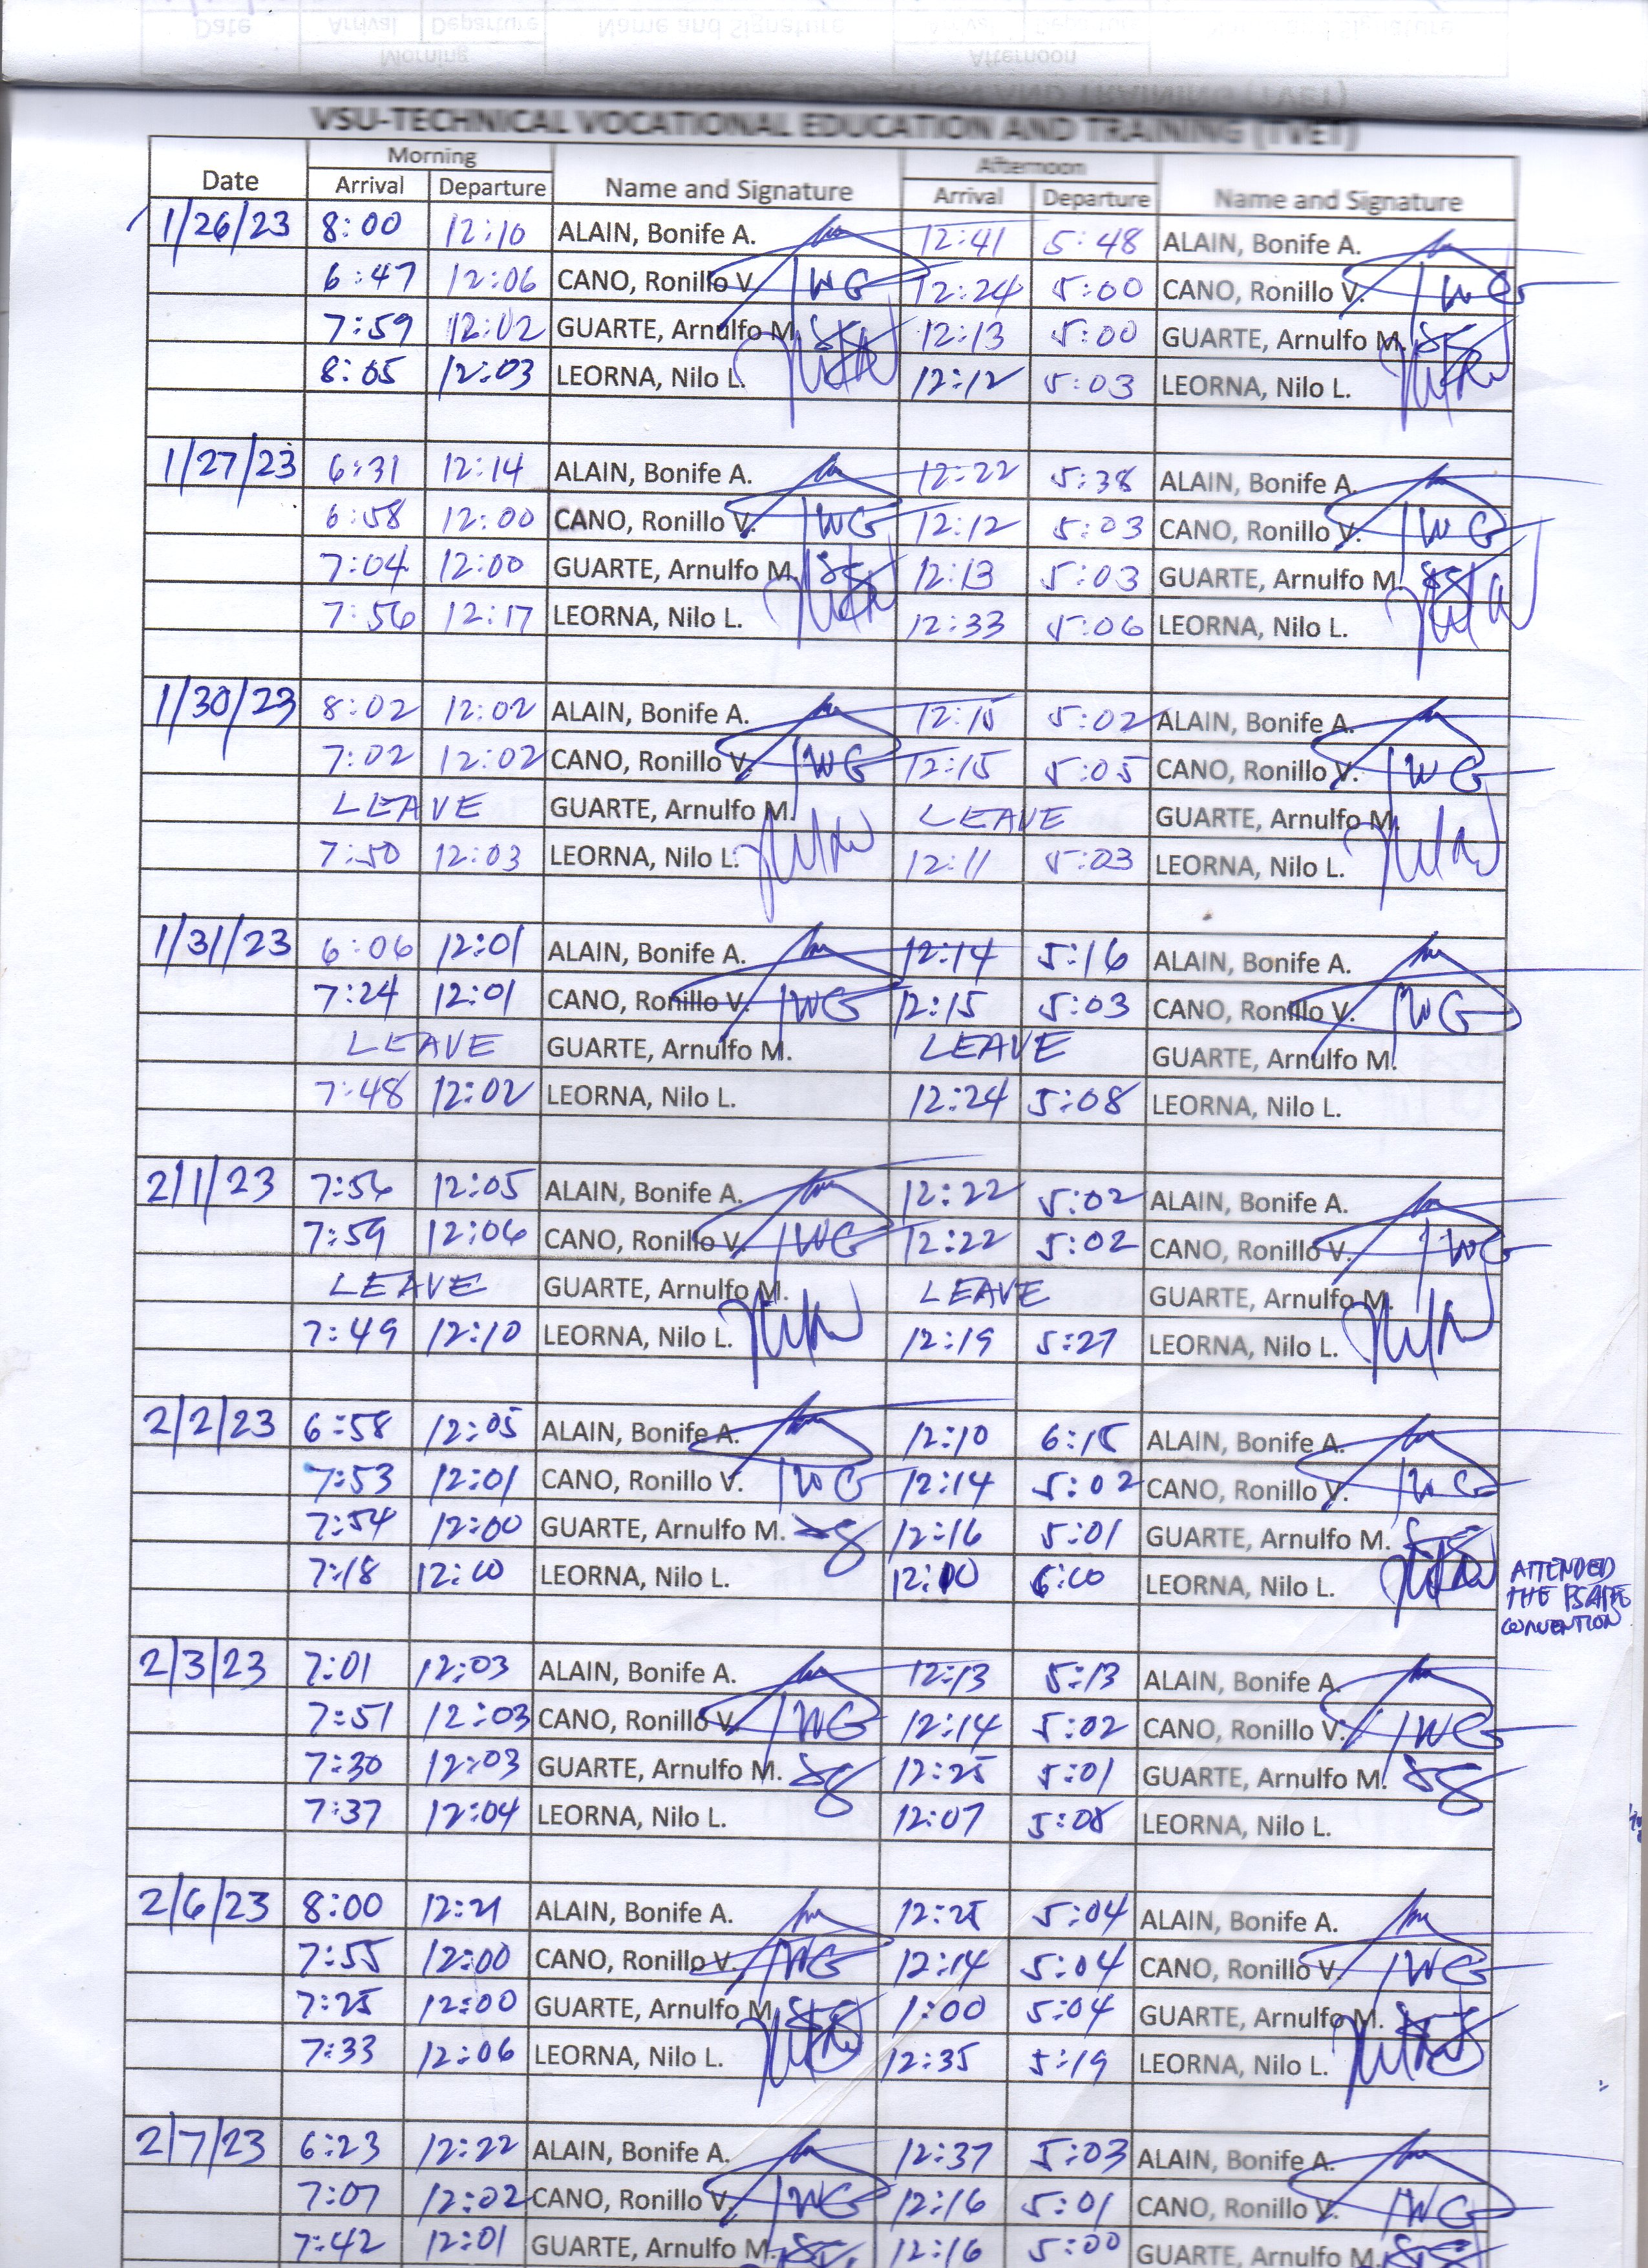 VSU-TECHNICAL VOCATIONAL EDUCATION AND TRAINING (TVET)
Morning Afternoon
Date Arrival Departure Name and Signature Arrival Departure Name and Signature
1/26/23 8:00 12:10 ALAIN, Bonife A. 12:41 5:48 ALAIN, Bonife A.
6:47 12:06 CANO, Ronillo V. 12:24 5:00 CANO, Ronillo V.
7:59 12:02 GUARTE, Arnulfo M. 12:13 5:00 GUARTE, Arnulfo M.
8:05 12:03 LEORNA, Nilo L. 12:12 5:03 LEORNA, Nilo L.
1/27/23 6:31 12:14 ALAIN, Bonife A. 12:22 5:38 ALAIN, Bonife A.
6:58 12:00 CANO, Ronillo V. 12:12 5:03 CANO, Ronillo V.
7:04 12:00 GUARTE, Arnulfo M. 12:13 5:03 GUARTE, Arnulfo M.
7:56 12:17 LEORNA, Nilo L. 12:33 5:06 LEORNA, Nilo L.
1/30/23 8:02 12:02 ALAIN, Bonife A. 12:15 5:02 ALAIN, Bonife A.
7:02 12:02 CANO, Ronillo V. 12:15 5:05 CANO, Ronillo V.
LEAVE GUARTE, Arnulfo M. LEAVE GUARTE, Arnulfo M.
7:50 12:03 LEORNA, Nilo L. 12:11 5:03 LEORNA, Nilo L.
1/31/23 6:06 12:01 ALAIN, Bonife A. 12:14 5:16 ALAIN, Bonife A.
7:24 12:01 CANO, Ronillo V. 12:15 5:03 CANO, Ronillo V.
LEAVE GUARTE, Arnulfo M. LEAVE GUARTE, Arnulfo M.
7:48 12:02 LEORNA, Nilo L. 12:24 5:08 LEORNA, Nilo L.
2/1/23 7:56 12:05 ALAIN, Bonife A. 12:22 5:02 ALAIN, Bonife A.
7:59 12:06 CANO, Ronillo V. 12:22 5:02 CANO, Ronillo V.
LEAVE GUARTE, Arnulfo M. LEAVE GUARTE, Arnulfo M.
7:49 12:10 LEORNA, Nilo L. 12:19 5:27 LEORNA, Nilo L.
2/2/23 6:58 12:05 ALAIN, Bonife A. 12:10 6:15 ALAIN, Bonife A.
7:53 12:01 CANO, Ronillo V. 12:14 5:02 CANO, Ronillo V.
7:54 12:00 GUARTE, Arnulfo M. 12:16 5:01 GUARTE, Arnulfo M.
7:18 12:00 LEORNA, Nilo L. 12:10 6:00 LEORNA, Nilo L.
ATTENDED
THE
CONVENTION
2/3/23 7:01 12:03 ALAIN, Bonife A. 12:13 5:13 ALAIN, Bonife A.
7:51 12:03 CANO, Ronillo V. 12:14 5:02 CANO, Ronillo V.
7:30 12:03 GUARTE, Arnulfo M. 12:25 5:01 GUARTE, Arnulfo M.
7:37 12:04 LEORNA, Nilo L. 12:07 5:08 LEORNA, Nilo L.
2/6/23 8:00 12:21 ALAIN, Bonife A. 5:04 ALAIN, Bonife A.
7:55 12:00 CANO, Ronillo V. 12:14 5:04 CANO, Ronillo V.
7:25 12:00 GUARTE, Arnulfo M. 1:00 5:04 GUARTE, Arnulfo M.
7:33 12:06 LEORNA, Nilo L. 12:35 5:19 LEORNA, Nilo L.
2/7/23 6:23 12:22 ALAIN, Bonife A. 12:37 5:03 ALAIN, Bonife A.
7:07 12:02 CANO, Ronillo V. 12:16 5:01 CANO, Ronillo V.
7:42 12:01 GUARTE, Arnulfo M. 12:16 5:00 GUARTE, Arnulfo M.